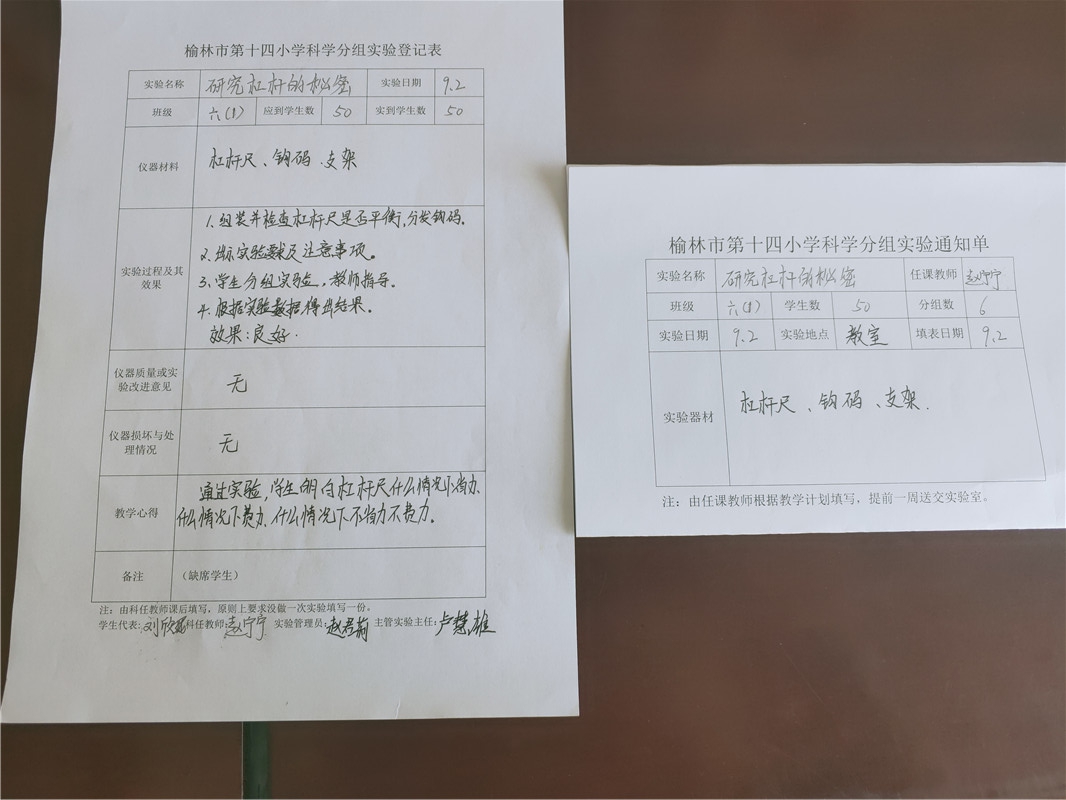 榆林市第十四小学科学分组实验登记表
实验名称 研究杠杆的秘密 实验日期 9.2
班级 六(1) 应到学生数 50 实到学生数 50
仪器材料 杠杆尺、钩码、支架
实验过程及其效果
1.组装并检查杠杆尺是否平衡,分发钩码。
2.揭示实验要求及注意事项。
3.学生分组实验,教师指导。
4.根据实验数据得出结果。
效果:良好.
仪器质量或实验改进意见 无
仪器损坏与处理情况 无
教学心得
通过实验,学生明白杠杆尺什么情况下省力、
什么情况下费力、什么情况下不省力不费力。
备注 (缺席学生)
注:由科任教师课后填写,原则上要求没做一次实验填写一份。
学生代表:刘欣 科任教师:赵宁宁 实验管理员:赵君莉 主管实验主任:卢慧雄
榆林市第十四小学科学分组实验通知单
实验名称 研究杠杆的秘密 任课教师 赵宁宁
班级 六(1) 学生数 50 分组数 6
实验日期 9.2 实验地点 教室 填表日期 9.2
实验器材 杠杆尺、钩码、支架.
注:由任课教师根据教学计划填写,提前一周送交实验室。